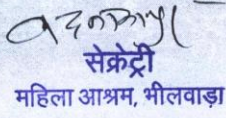 सेक्रेट्री
महिला आश्रम, भीलवाड़ा